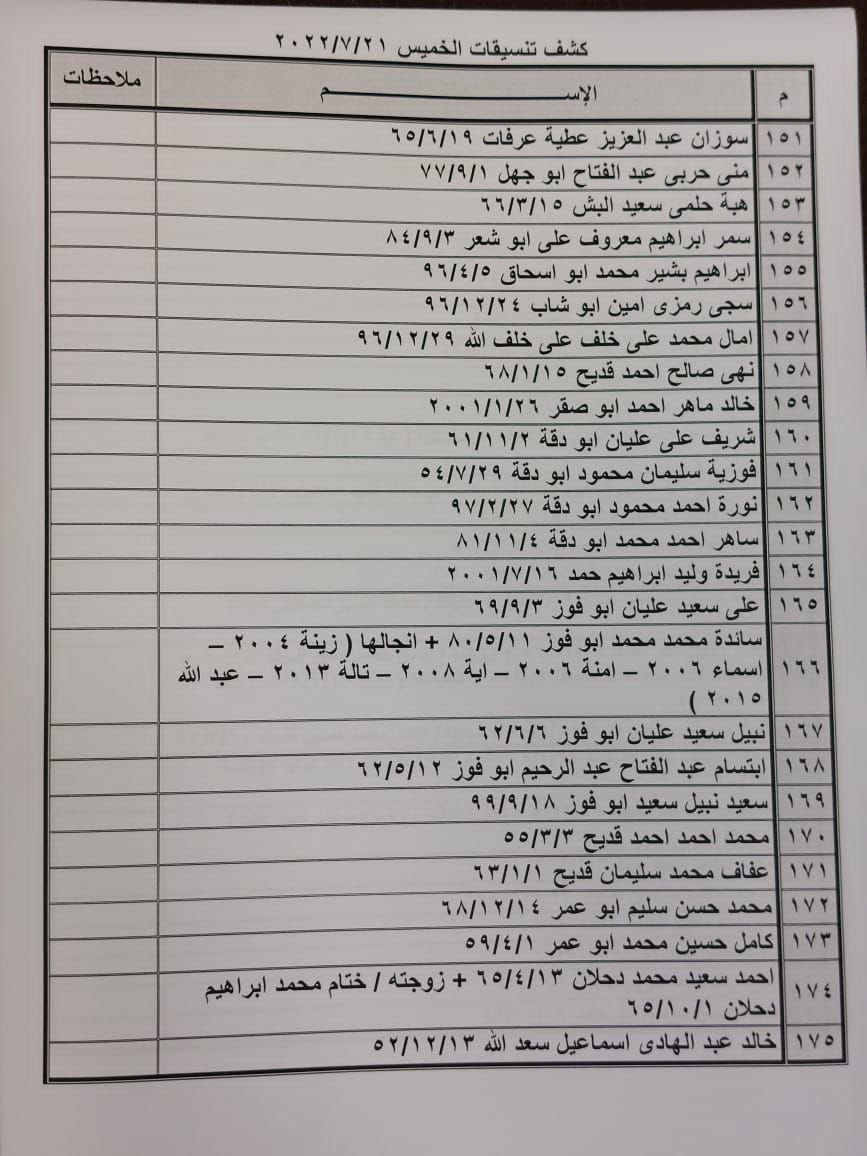 كشف تنسيقات الخميس ٢٠٢٢/٧/٢١
م الإســـــــــم ملاحظات
١٥١ سوزان عبد العزيز عطية عرفات ٦٥/٦/١٩
١٥٢ منى حربى عبد الفتاح ابو جهل ٧٧/٩/١
١٥٣ هبة حلمى سعيد البش ٦٦/٣/١٥
١٥٤ سمر ابراهيم معروف على ابو شعر ٨٤/٩/٣
١٥٥ ابراهيم بشير محمد ابو اسحاق ٩٦/٤/٥
١٥٦ سجى رمزى امين ابو شاب ٩٦/١٢/٢٤
١٥٧ امال محمد على خلف على خلف الله ٩٦/١٢/٢٩
١٥٨ نهى صالح احمد قديح ٦٨/١/١٥
١٥٩ خالد ماهر احمد ابو صقر ٢٠٠١/١/٢٦
١٦٠ شريف على عليان ابو دقة ٦١/١١/٢
١٦١ فوزية سليمان محمود ابو دقة ٥٤/٧/٢٩
١٦٢ نورة احمد محمود ابو دقة ٩٧/٢/٢٧
١٦٣ ساهر احمد محمد ابو دقة ٨١/١١/٤
١٦٤ فريدة وليد ابراهيم حمد ٢٠٠١/٧/١٦
١٦٥ على سعيد عليان ابو فوز ٦٩/٩/٣
١٦٦ سائدة محمد محمد ابو فوز ٨٠/٥/١١ + انجالها ( زينة ٢٠٠٤ –
اسماء ٢٠٠٦ – امنة ٢٠٠٦ – اية ٢٠٠٨ – تالة ٢٠١٣ – عبد الله
٢٠١٥ )
١٦٧ نبيل سعيد عليان ابو فوز ٦٢/٦/٦
١٦٨ ابتسام عبد الفتاح عبد الرحيم ابو فوز ٦٢/٥/١٢
١٦٩ سعيد نبيل سعيد ابو فوز ٩٩/٩/١٨
١٧٠ محمد احمد احمد قديح ٥٥/٣/٣
١٧١ عفاف محمد سليمان قديح ٦٣/١/١
١٧٢ محمد حسن سليم ابو عمر ٦٨/١٢/١٤
١٧٣ كامل حسين محمد ابو عمر ٥٩/٤/١
١٧٤ احمد سعيد محمد دحلان ٦٥/٤/١٣ + زوجته / ختام محمد ابراهيم
دحلان ٦٥/١٠/١
١٧٥ خالد عبد الهادى اسماعيل سعد الله ٥٢/١٢/١٣